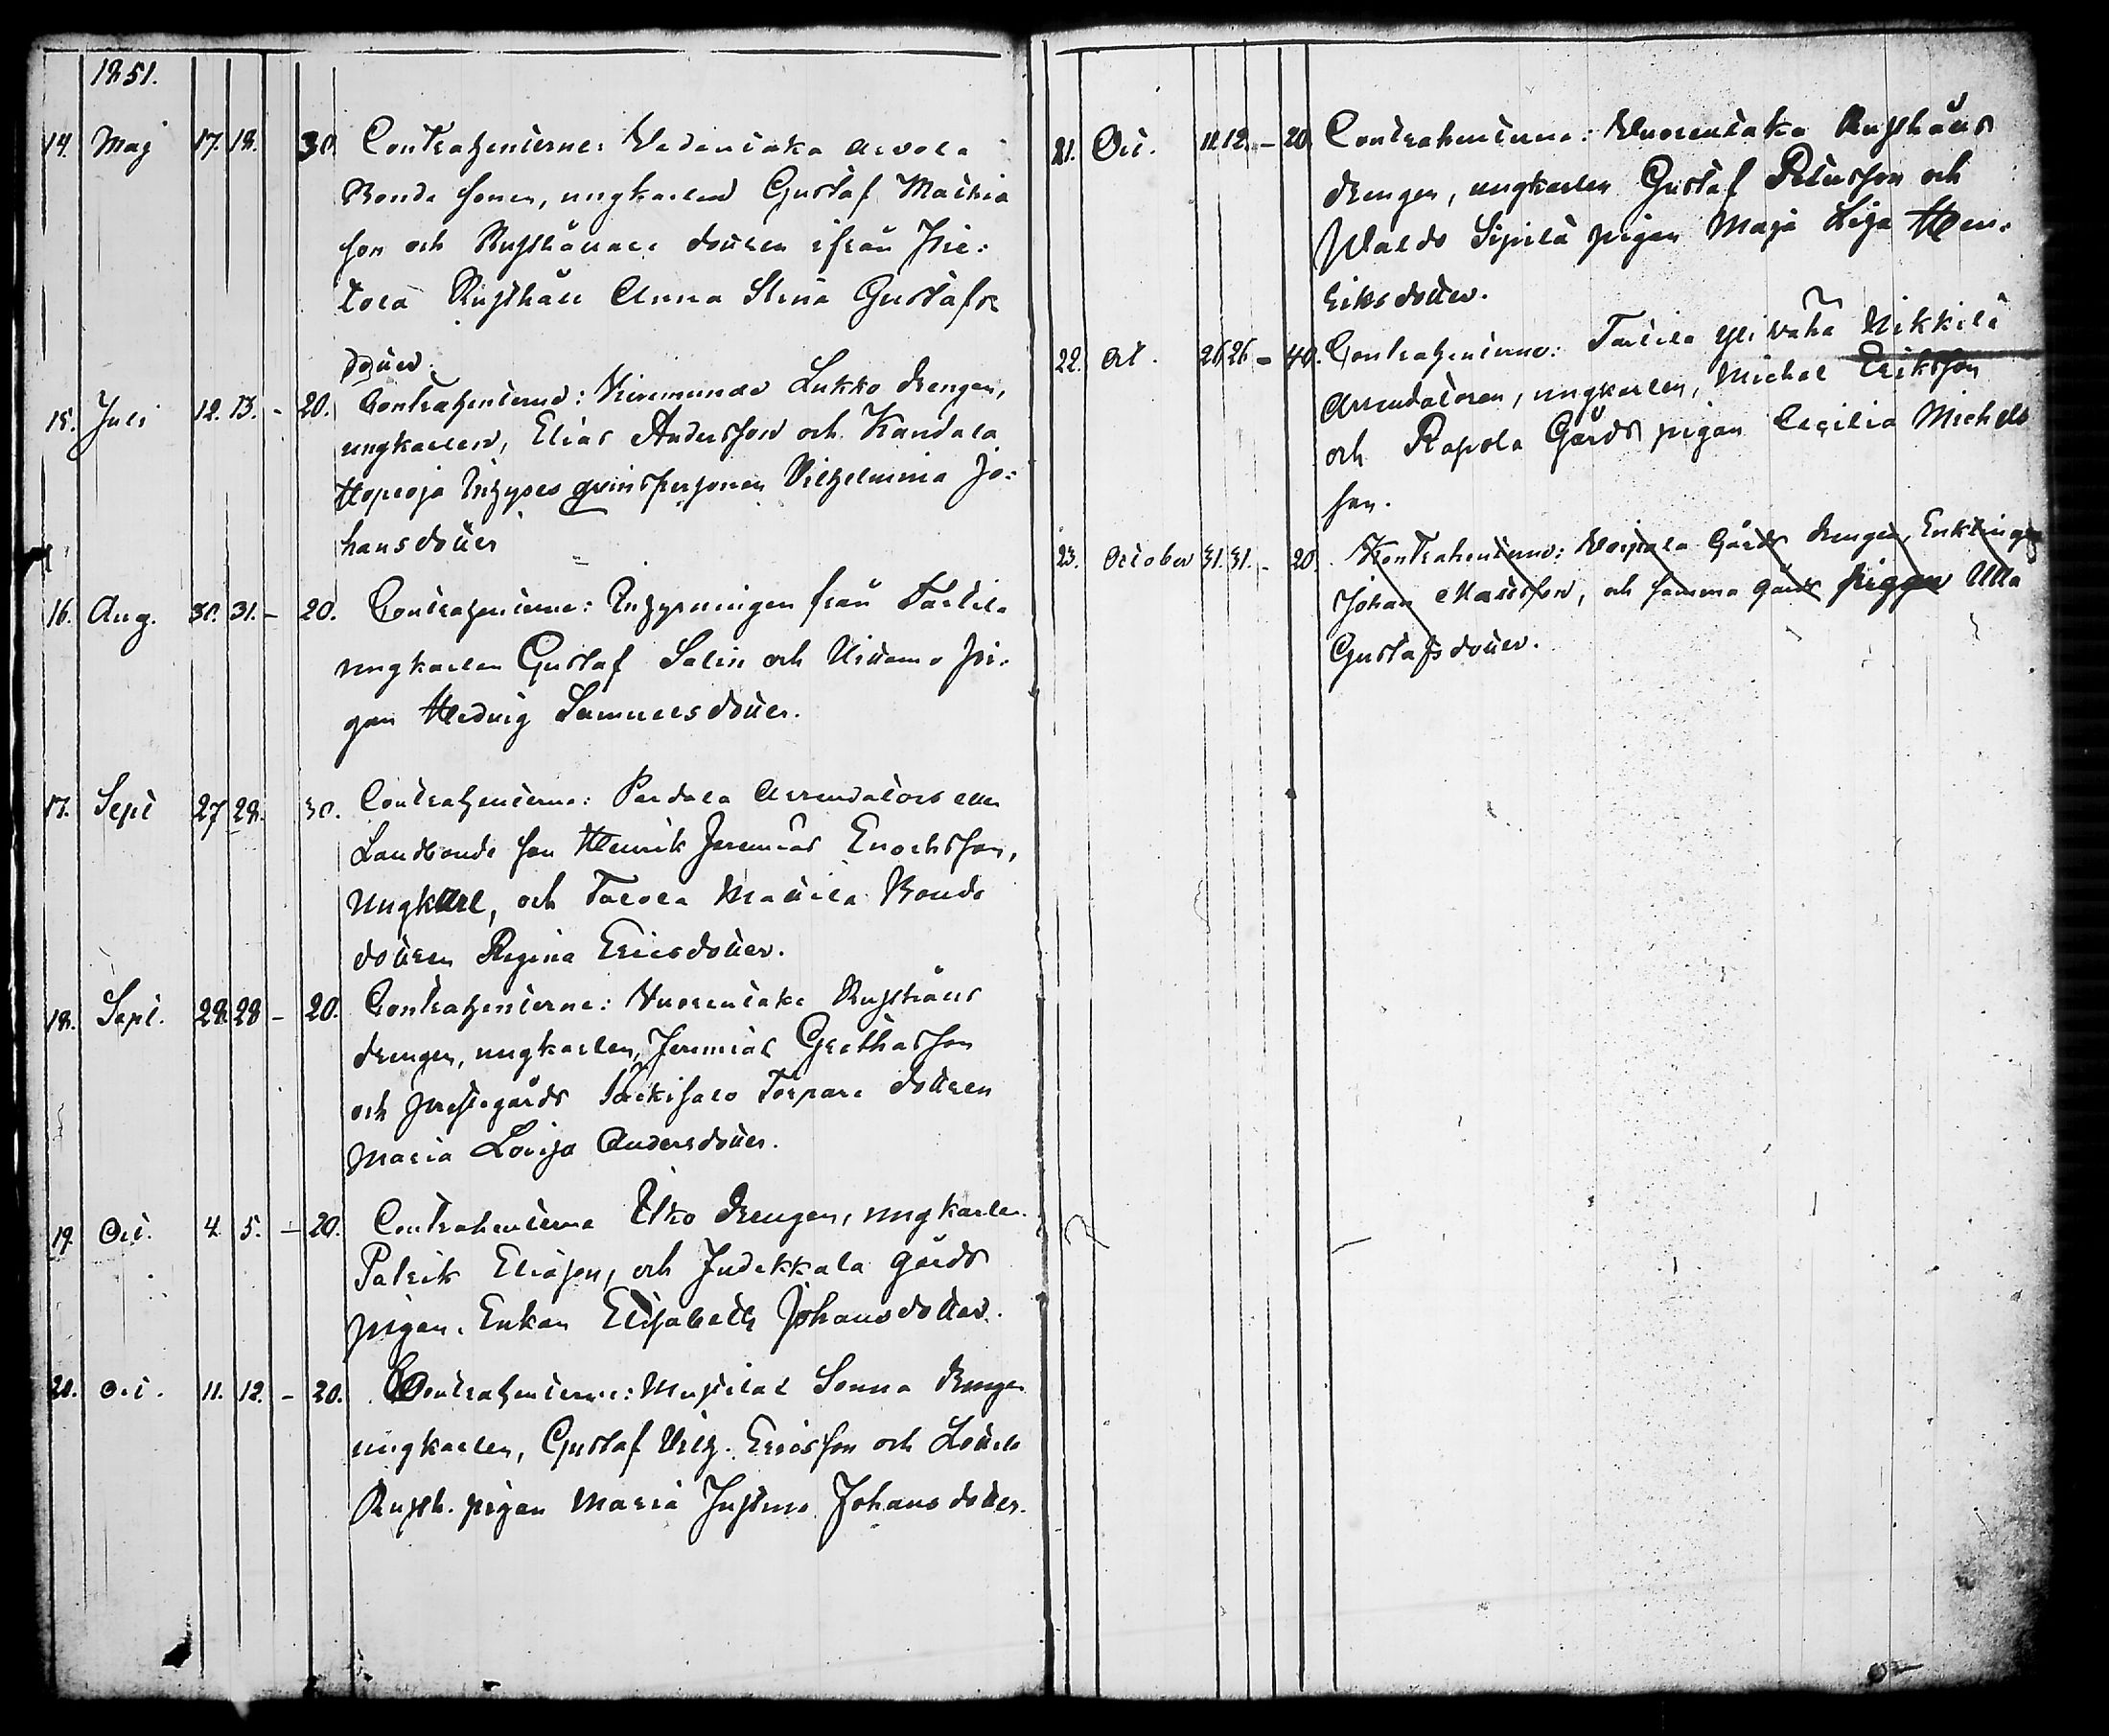 1851.
14. Maj 17. 18. 30. Contrahenterne: Vedentaka Arvola
Bonde sonen, ungkarlen Gustaf Mathia
son och Rusthållare dottren ifrån Pie-
tola Rusthåll Anna Stina Gustafs
dotter.
15. Juli 12. 13. - 20. Contrahenterne: Kiromunder Lukko drengen,
ungkarlen, Elias Andersson och Kandala
Hopeoja Inhyses qvinspersonen Vilhelmina Jo-
hansdotter
16. Aug. 30. 31. - 20. Contrahenterne: Inhysningen från Tarttila
ungkarlen Gustaf Salin och Uittamo pi-
gan Hedvig Samuelsdotter.
17. Sept 27 28. 30. Contrahenterne: Perdala Arrendators eller
Landbonde son Henrik Jeremias Enochsson,
Ungkarl, och Talola Mattila Bonde
dottren Regina Ericsdotter.
18. Sept. 28. 28 - 20. Contrahenterne: Vuorentaka Rusthålls
drengen, ungkarlen, Jeremias Gerthasson
och prestegårds Säckisalo Torpare dottren
Maria Lovisa Andersdotter.
19. Oct. 4. 5. - 20. Contrahenterne Utko drengen, ungkarlen
Patrik Eliason, och Judikkala gårds
pigan, Enkan Elisabeth Johansdotter.
20. Oct. 11. 12. - 20. Contrahenterne: Sonna drengen
ungkarlen, Gustaf Vilh. Ericsson och
Rusth. pigan Maria Justina Johansdotter.
21. Oct. 11. 12. - 20. Contrahenterne: Vuorentaka Rusthålls
drengen, ungkarlen Gustaf Petersson och
Uskila Sipilä pigan Maja Lisa Hen-
riksdotter.
22. Oct. 26 26 - 40. Contrahenterne: Tarttila yli vähä Nikkilä
Arrendatoren, ungkarlen, Michel Eriksson
och Rapola Gårds pigan Cecilia Michels
son.
23. October 31. 31. - 20. Kontrahenterne: Voipala Gårds drengen, Enklingen
Johan Mattsson, och samma gårds pigan Ulla
Gustafsdotter.